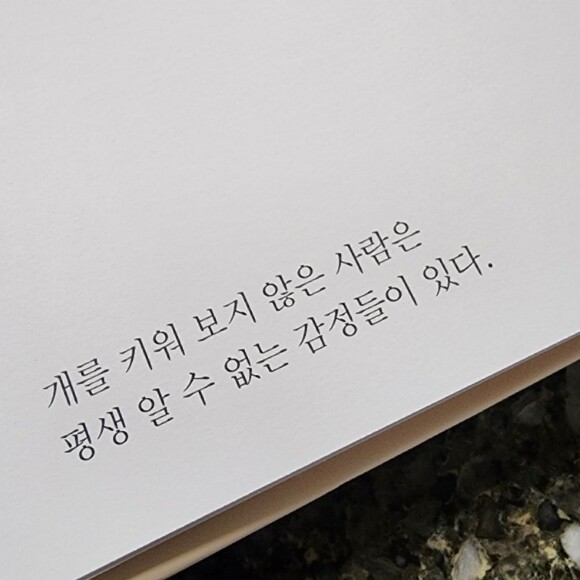 개를 키워 보지 않은 사람은
평생 알 수 없는 감정들이 있다.